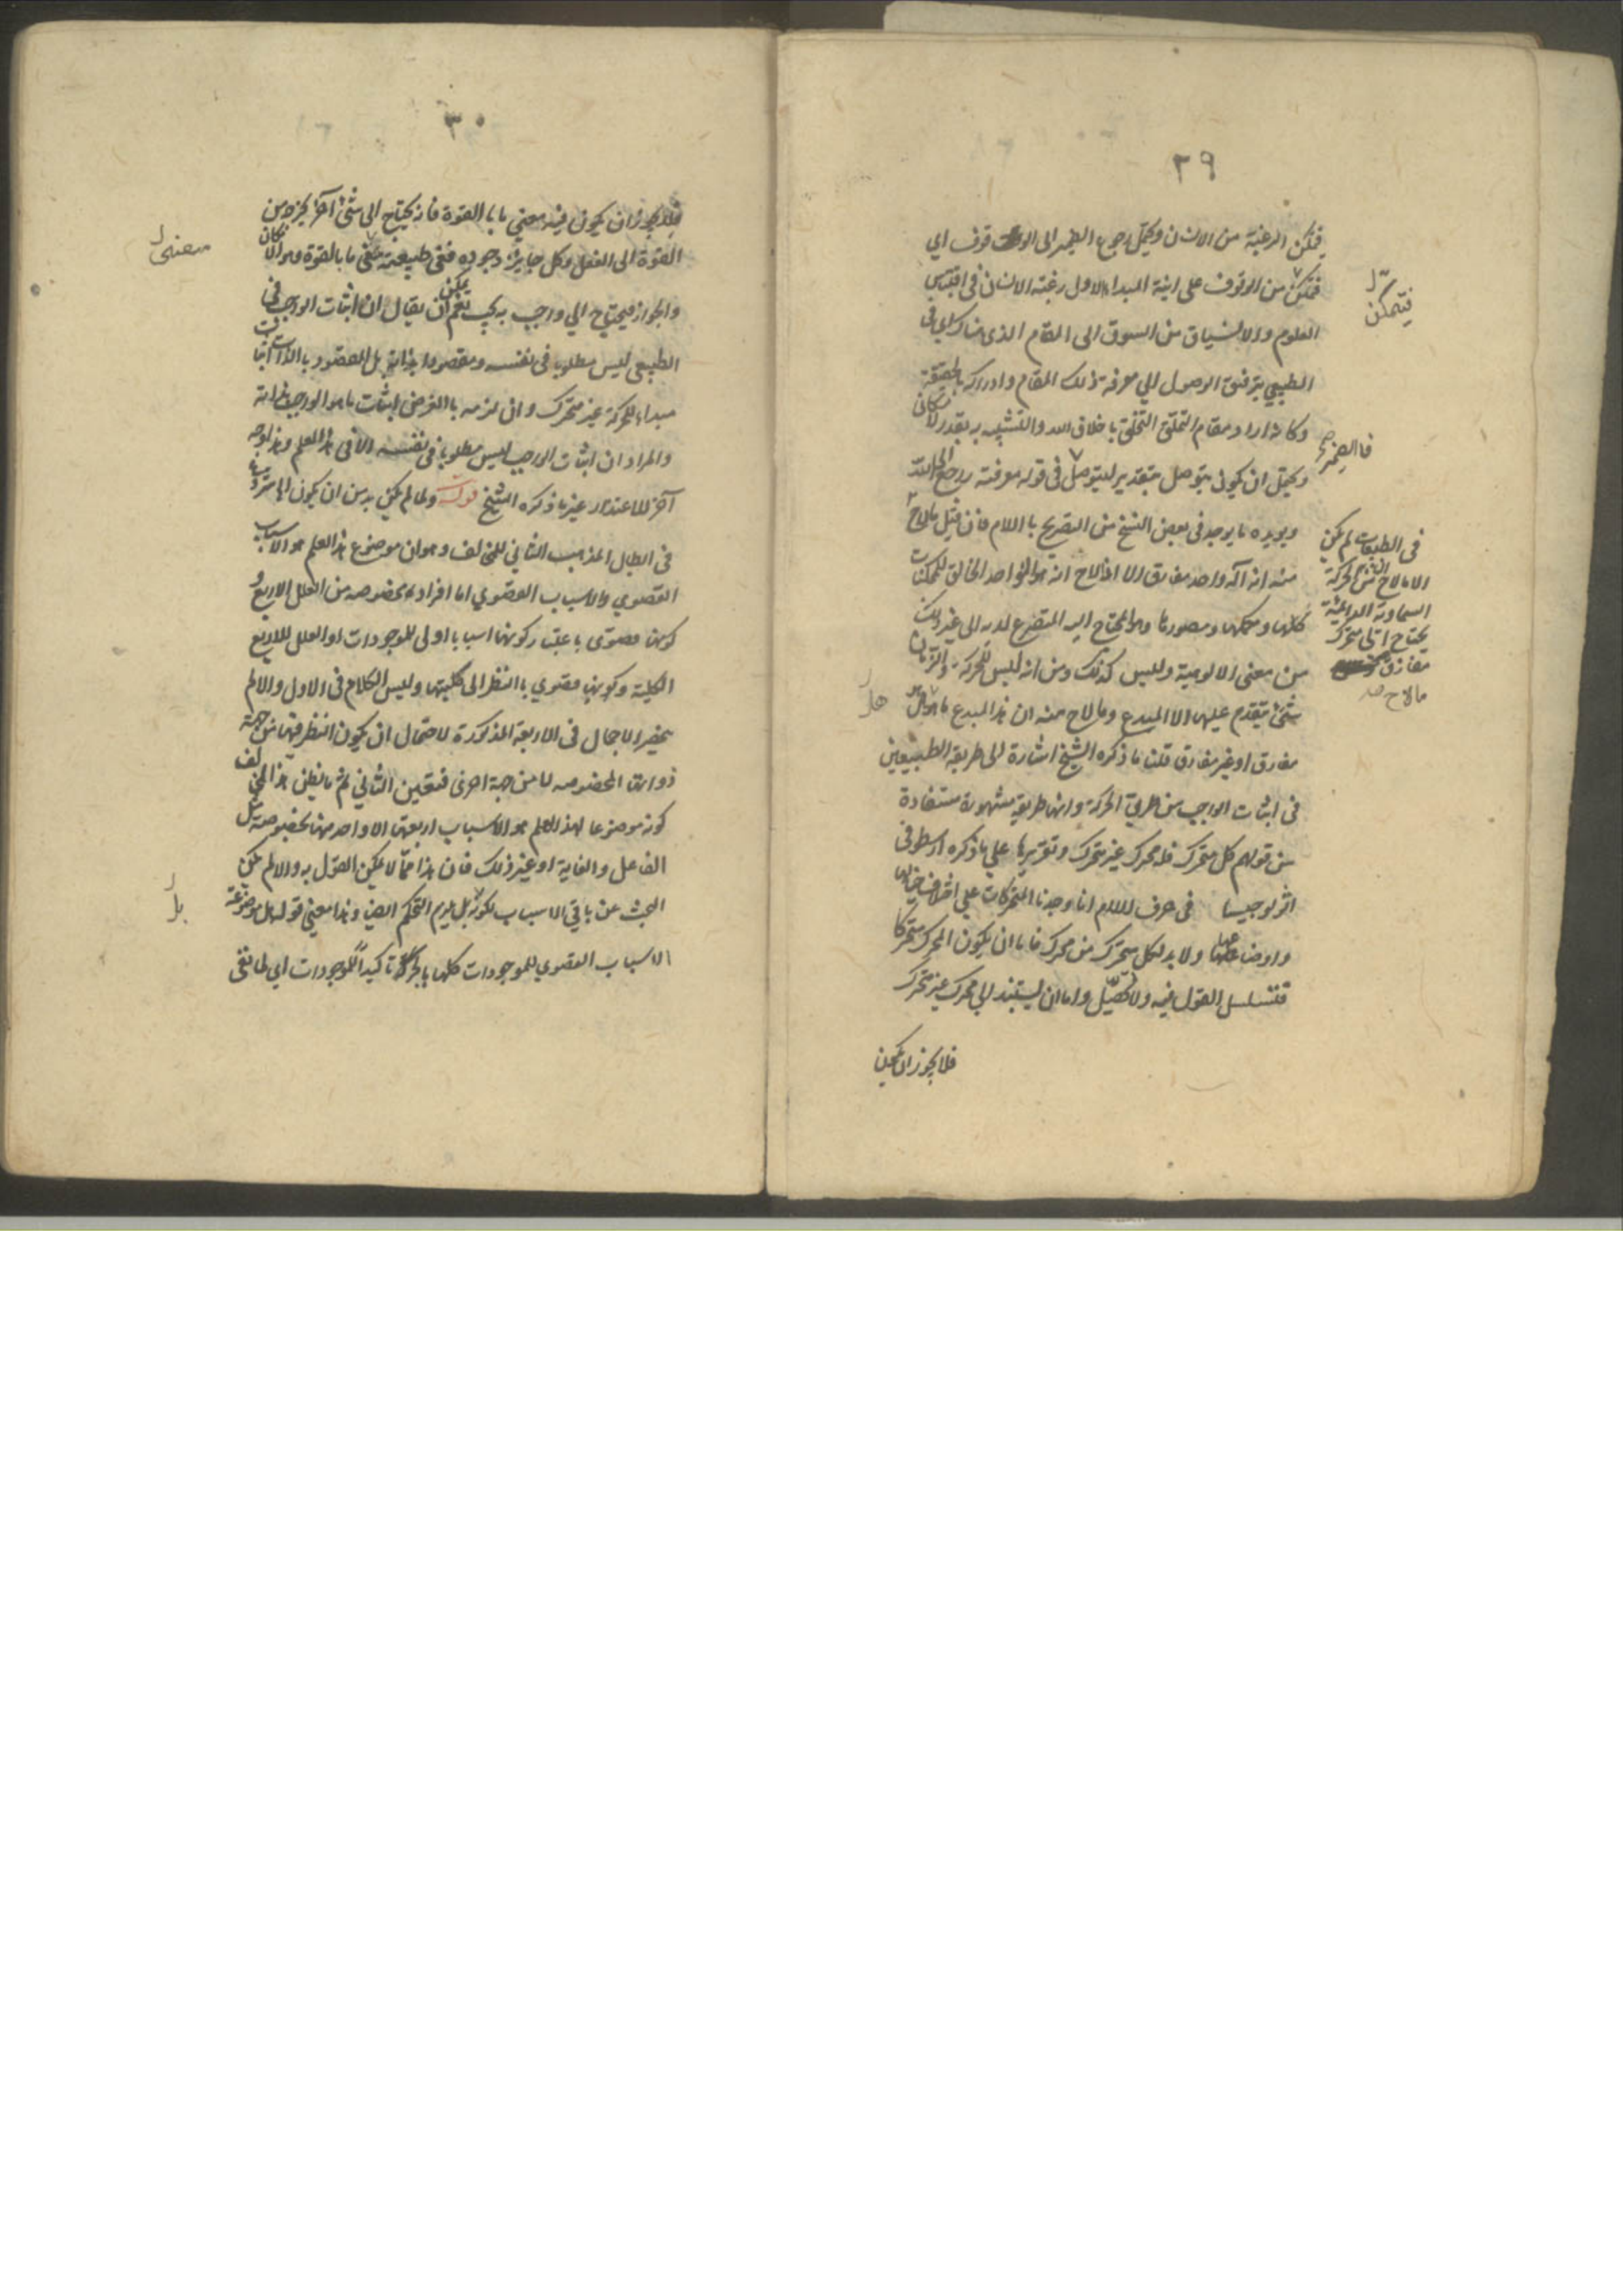 ٢٩
فيمكن الرغبة من الانسان ويحتمل رجوع الضمير الى الوقوف اى
فتمكن من الوقوف على انية المبداء الاول رغبته الانسان فى اقتباس
العلوم والانسياق من السوق الى المقام الذى هناك اى فى
الطبيعى بتوفيق الوصول الى معرفة ذلك المقام وادراكه بالحقيقة
وكانه اراد مقام التخلق باخلاق الله والتشبه به بقدر الامكان
ويحتمل ان يكون بتوصل بتقدير ليتوصل فى قوله معرفته راجع الى الله
ويويده ما يوجد فى بعض النسخ من التصريح باللام فان قيل مالاح
منه انه اله واحد مفارق الا انه الواحد الخالق للممكنات
كلها وممكنها ومصورها وهو المحتاج اليه المتضرع لديه الى غير ذلك
من معنى الالوهية وليس كذلك ومن انه ليس للحركة والزمان
شئ يتقدم عليها الا المبدع وما لاح منه ان هذا المبدع ما هو هل
مفارق او غير مفارق قلنا ما ذكره الشيخ اشارة الى طريقة الطبيعيين
فى اثبات الواجب من طريق الحركة وانها طريقة مشهورة مستفادة
من قولهم كل متحرك فله محرك غير متحرك وتقريرها على ما ذكره ارسطو فى
اثولوجيسا فى حرف اللام انا وجدنا المتحركات على اختلاف جهاتها
واوضاعها ولا بد لكل متحرك من محرك فاما ان يكون المحرك متحركا
فتتسلسل القول فيه ولا تحصيل واما ان يستند الى محرك غير متحرك
فلا يجوز ان يكون
فيتمكن
فاالضمير
فى الطبيعات لم يكن
الا مالاح من الحركة
السماوية الدائمة
يحتاج الى محرك
مفارق
مالاح منه
هل
٣٠
فلا يجوز ان يكون فيه معنى ما بالقوة فانه يحتاج الى شئ آخر يخرجه من
القوة الى الفعل وكل جايز وجوده ففى طبيعته معنى ما بالقوة وهو الامكان
والجواز فيحتاج الى واجب به يجب نعم يمكن ان يقال ان اثبات الواجب فى
الطبيعى ليس مطلوبا فى نفسه ومقصودا بذاته بل المقصود بالذات اثبات
مبداء للحركة غير متحرك وان لزمه بالعرض اثبات ما هو الواجب بذاته
والمراد ان اثبات الواجب ليس مطلوبا فى نفسه الا فى هذا العلم وهذا وجه
آخر للاعتذار غير ما ذكره الشيخ قوله ولما لم يكن بد من ان يكون
فى ابطال المذهب الثانى للمخالف وهو ان موضوع هذا العلم هو الاسباب
القصوى والاسباب القصوى اما افراد مخصوصه من العلل الاربع و
كونها قصوى باعتبار كونها اسبابا اولى للموجودات او العلل الاربع
الكلية وكونها قصوى بالنظر الى كليتها وليس الكلام فى الاول والا لم
يخير الاجمال فى الاربعة المذكورة لاحتمال ان يكون النظر فيها من جهة
ذواتها المخصوصه لا من جهة اخرى فتعين الثانى ثم ما يظن هذا المخالف
كونه موضوعا لهذا العلم هو الاسباب اربعتها الا واحد منها بخصوصه مثل
الفاعل والغاية او غير ذلك فان هذا مما لا يمكن القول به والا لم يكن
البحث عن باقى الاسباب بل يلزم التحكم ايضا وهذا معنى قوله بل موضوعة
الاسباب القصوى للموجودات كلها تاكيدا للموجودات اى لما نفى
معنى
بل